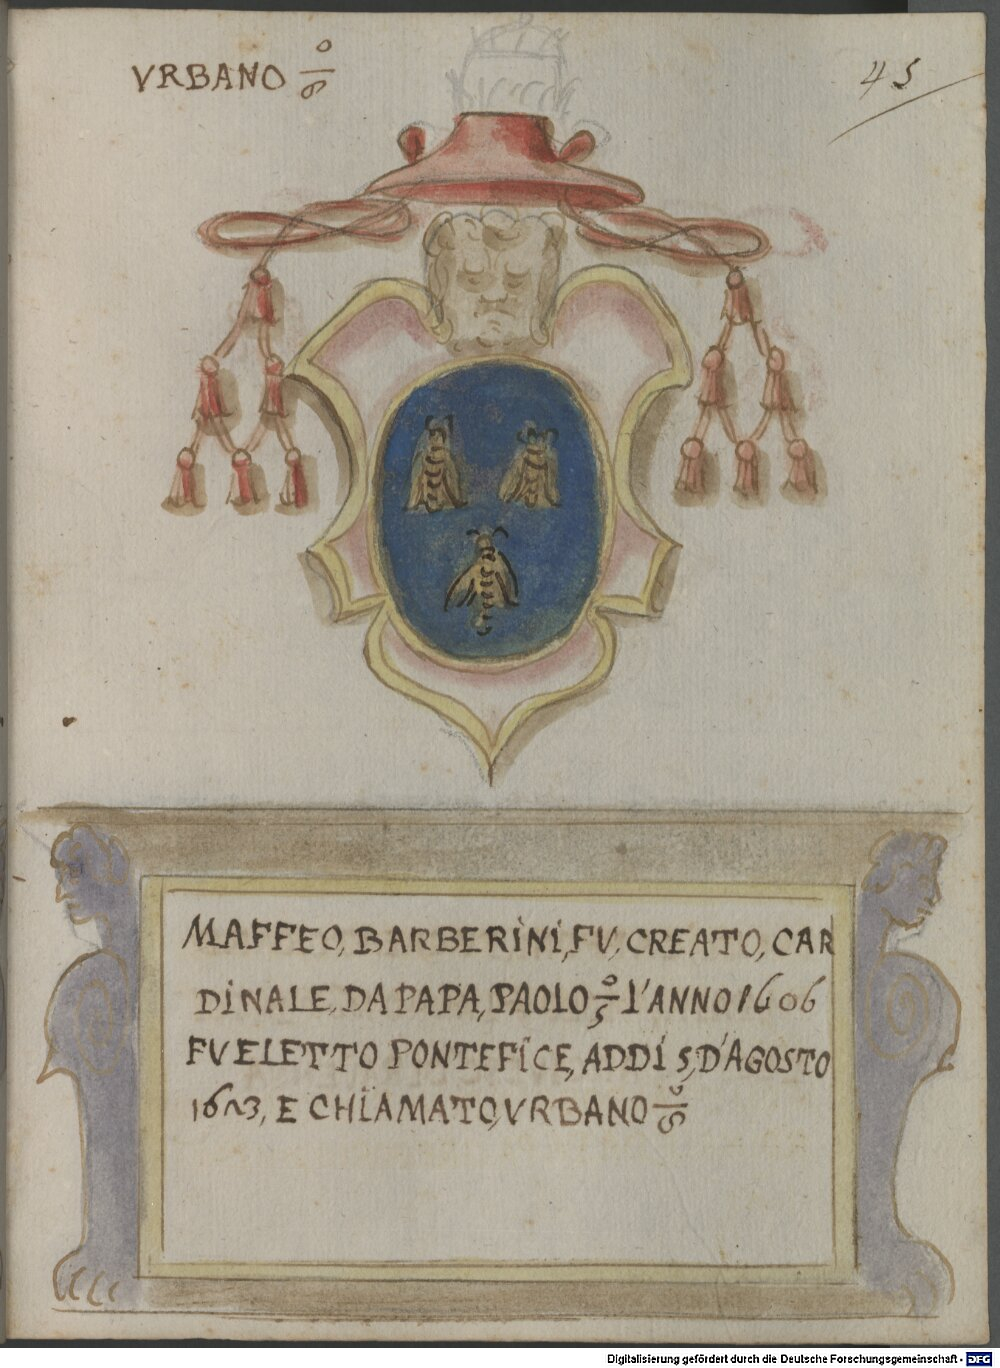 VRBANO 0/6
45
MAFFEO, BARBERINI, FV, CREATO, CAR
DINALE, DA PAPA, PAOLO 0/5 L'ANNO 1606
FV ELETTO PONTEFICE, ADDI 5, D'AGOSTO
1623, E CHIAMATO, VRBANO 0/6
Digitalisierung gefördert durch die Deutsche Forschungsgemeinschaft - DFG